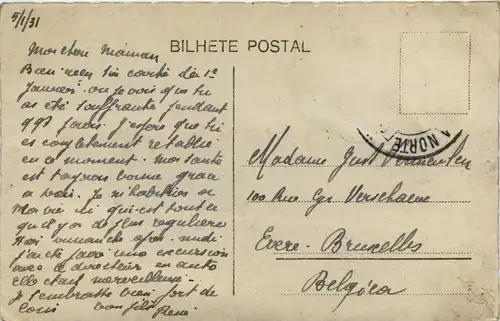 5/1/31
Mon cher Maman
BILHETE POSTAL
Bien reçu ta carte du 1er
Janvier. ou je vois que tu
as été souffrante pendant
qqs jours. J'espère que tu
es complètement rétablie
en ce moment. Ma santé
est toujours bonne grace
a
qui est tout ce
qu'il y a de plus régulière
dimanche après-midi
j'ai fait une excursion
avec le docteur en auto
elle était merveilleuse.
Je t'embrasse bien fort de
ton fils
René
NORTE
Madame Just
100 Rue Ed. Verschaeve
Evere-Bruxelles
Belgica